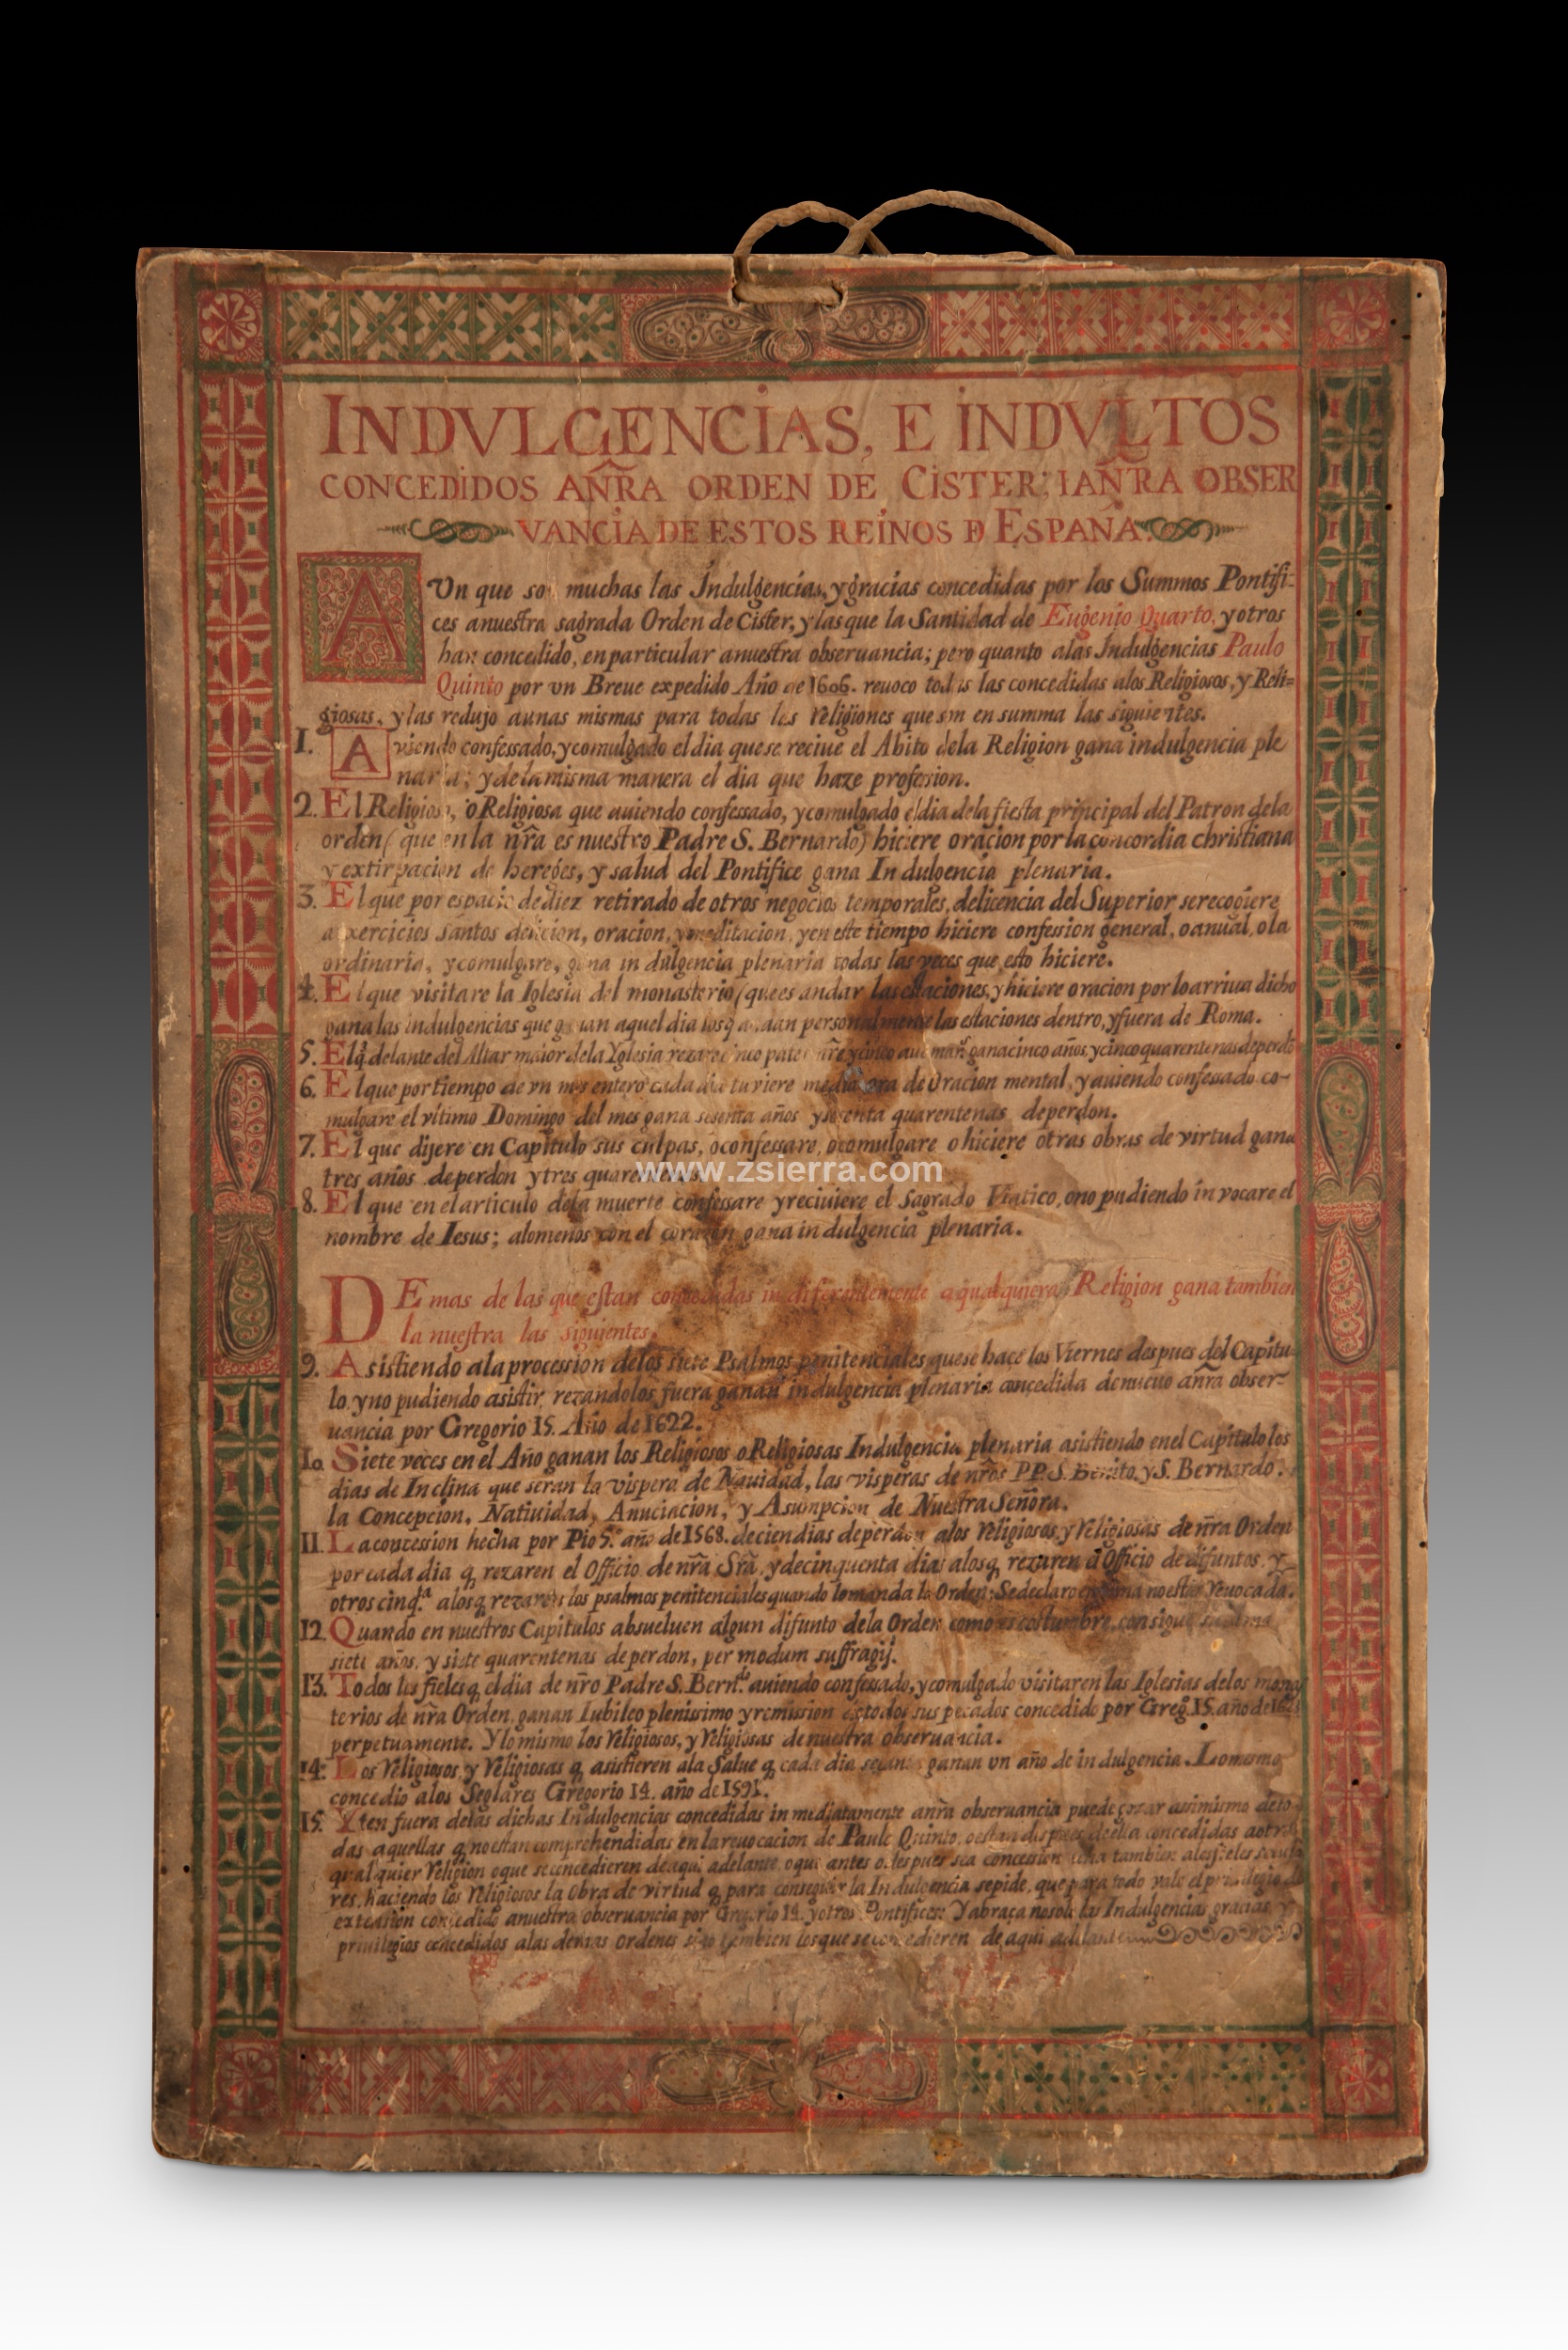 INDVLGENCIAS, E INDVLTOS
CONCEDIDOS AÑRA ORDEN DE CISTER; I AÑRA OBSER
VANCIA DE ESTOS REINOS D ESPAÑA.
AVn que son muchas las Indulgencias, y gracias concedidas por los Summos Pontifi-
ces a nuestra sagrada Orden de Cister, y las que la Santidad de Eugenio Quarto, y otros
han concedido, en particular a nuestra obseruancia; pero quanto a las Indulgencias Paulo
Quinto por vn Breue expedido Año de 1606. reuoco todas las concedidas a los Religiosos, y Reli-
giosas, y las redujo a unas mismas para todas las religiones que son en summa las siguientes.
1. Aviendo confessado, y comulgado el dia que se reciue el Abito de la Religion gana indulgencia ple
naria; y de la misma manera el dia que haze profesion.
2. El Religioso, o Religiosa que auiendo confessado, y comulgado el dia de la fiesta principal del Patron de la
orden (que en la ñra es nuestro Padre S. Bernardo) hiciere oracion por la concordia christiana
y extirpacion de hereges, y salud del Pontifice gana Indulgencia plenaria.
3. El que por espacio de diez retirado de otros negocios temporales, de licencia del Superior se recogiere
a exercicios santos de licion, oracion, y meditacion, y en este tiempo hiciere confession general, o anual, o la
ordinaria, y comulgare, gana indulgencia plenaria todas las veces que esto hiciere.
4. El que visitare la Iglesia del monasterio (que es andar las estaciones, y hiciere oracion por lo arriua dicho
gana las indulgencias que ganan aquel dia los q andan personalmente las estaciones dentro, y fuera de Roma.
5. El q delante del Altar maior de la Yglesia rezare cinco pater ñre y cinco aue mar. gana cinco años, y cinco quarentenas de perdo
6. El que por tiempo de vn mes entero cada dia tuviere media ora de Oracion mental, y auiendo confessado co-
mulgare el vltimo Domingo del mes gana sesenta años y sesenta quarentenas de perdon.
7. El que dijere en Capitulo sus culpas, o confessare, o comulgare o hiciere otras obras de virtud gana
tres años de perdon y tres quarentenas
8. El que en el articulo de la muerte confessare y reciuiere el Sagrado Viatico, o no pudiendo invocare el
nombre de Iesus; a lo menos con el corazon gana indulgencia plenaria.
DE mas de las que estan concedidas indiferentemente a qualquiera Religion gana tambien
la nuestra las siguientes.
9. Asistiendo a la procession de los siete Psalmos penitenciales que se hace los Viernes despues del Capitu-
lo, y no pudiendo asistir, rezandolos fuera ganan indulgencia plenaria concedida de nueuo a ñra obser-
uancia por Gregorio 15. Año de 1622.
10 Siete veces en el Año ganan los Religiosos o Religiosas Indulgencia plenaria asistiendo en el Capitulo los
dias de Inclina que seran la vispera de Nauidad, las visperas de nr̃os P.P.S. Benito, y S. Bernardo.
la Concepcion, Natiuidad, Anuciacion, y Asumpcion de Nuestra Señora.
11. La concession hecha por Pio 5.º año de 1568. de cien dias de perdon a los religiosos, y religiosas de ñra Orden
por cada dia q rezaren el Officio de nr̃a Sr̃a, y de cinquenta dias a los q rezaren el Officio de difuntos, y
otros cinq.ta a los q rezaren los psalmos penitenciales quando lo manda la Orden: Se declaro en Roma no estar reuocada.
12 Quando en nuestros Capitulos absueluen algun difunto de la Orden como es costumbre, consigue su alma
siete años, y siete quarentenas de perdon, per modum suffragij.
13. Todos los fieles q el dia de nr̃o Padre S. Bern.do auiendo confessado, y comulgado visitaren las Iglesias de los monas
terios de nr̃a Orden, ganan Iubileo plenissimo y remission de todos sus pecados concedido por Greg.º 15. año de
perpetuamente. Y lo mismo los religiosos, y religiosas de nuestra obseruancia.
14. Los religiosos, y religiosas q asistieren a la Salue q cada dia se canta ganan vn año de indulgencia. Lo mesmo
concedio a los Seglares Gregorio 14. año de 1591.
15. Yten fuera de las dichas Indulgencias concedidas inmediatamente a nr̃a obseruancia puede gozar assimismo de to
das aquellas q no estan comprehendidas en la reuocacion de Paulo Quinto, o estan dispues de ella concedidas a otra
qualquier religion o que se concedieren de aqui adelante, o que antes o despues sea concession hecha tambien a los fieles seculà
res, haciendo los religiosos la Obra de virtud q para conseguir la Indulgencia se pide, que para todo vale el priuilegio de
extension concedido a nuestra obseruancia por Gregorio 14. y otros Pontifices: Y abraça no solo las Indulgencias gracias, y
priuilegios concedidos a las demas ordenes sino tambien los que se concedieren de aqui adelante
www.zsierra.com